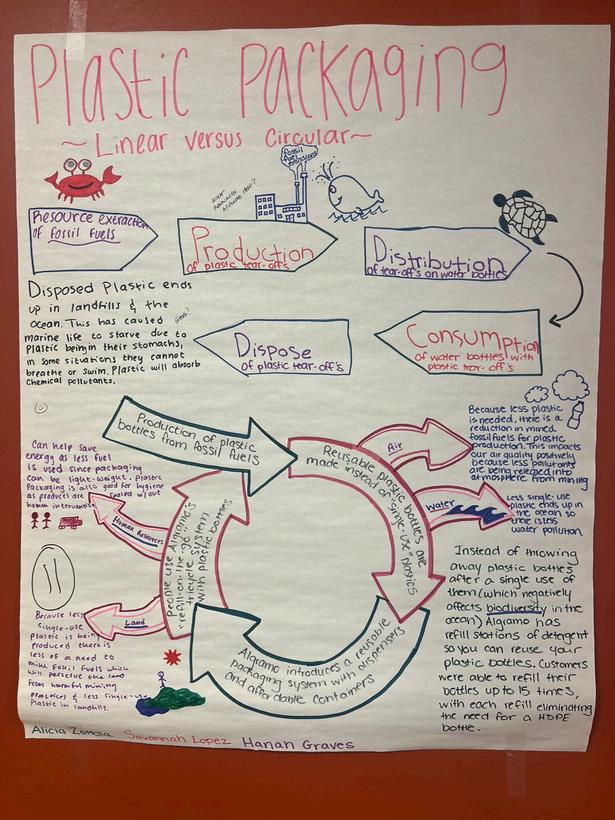 Plastic Packaging
~Linear versus Circular~
Fossil
fuel
emissions
Resource extraction
of fossil fuels
Production
of plastic tear-offs
Distribution
of tear-off's on water bottles
Consumption
of water bottles with
plastic tear-off's
Dispose
of plastic tear-off's
Disposed Plastic ends
up in landfills & the
ocean. This has caused
marine life to starve due to
Plastic being in their stomachs,
in some situations they cannot
breathe or swim. Plastic will absorb
chemical pollutants.
Production of plastic
bottles from fossil fuels
Reusable plastic bottles are
made instead of "single-use" plastics
Algramo introduces a reusable
packaging system with dispensers
and affordable containers
People use Algramo's
"refill-on-the-go"
tricycle system
with plastic bottles
Air
Because less plastic
is needed, there is a
reduction in mined
fossil fuels for plastic
production. This impacts
our air quality positively
because less pollutants
are being released into
atmosphere from mining
Water
Less single-use
plastic ends up in
the ocean so
there is less
water pollution
Human Resources
Can help save
energy as less fuel
is used since packaging
can be light-weight. Plastic
Packaging is also good for hygiene
as products are sealed w/out
human intervention
Land
Because less
single-use
Plastic is being
produced there is
less of a need to
mine fossil fuels which
will perserve the land
from harmful mining
practices & less single-use
Plastic in landfills.
Instead of throwing
away plastic bottles
after a single use of
them (which negatively
affects biodiversity in the
ocean) Algramo has
refill stations of detergent
so you can reuse your
plastic bottles. Customers
were able to refill their
bottles up to 15 times,
with each refill eliminating
the need for a HDPE
bottle.
Alicia Savannah Lopez Hanah Graves